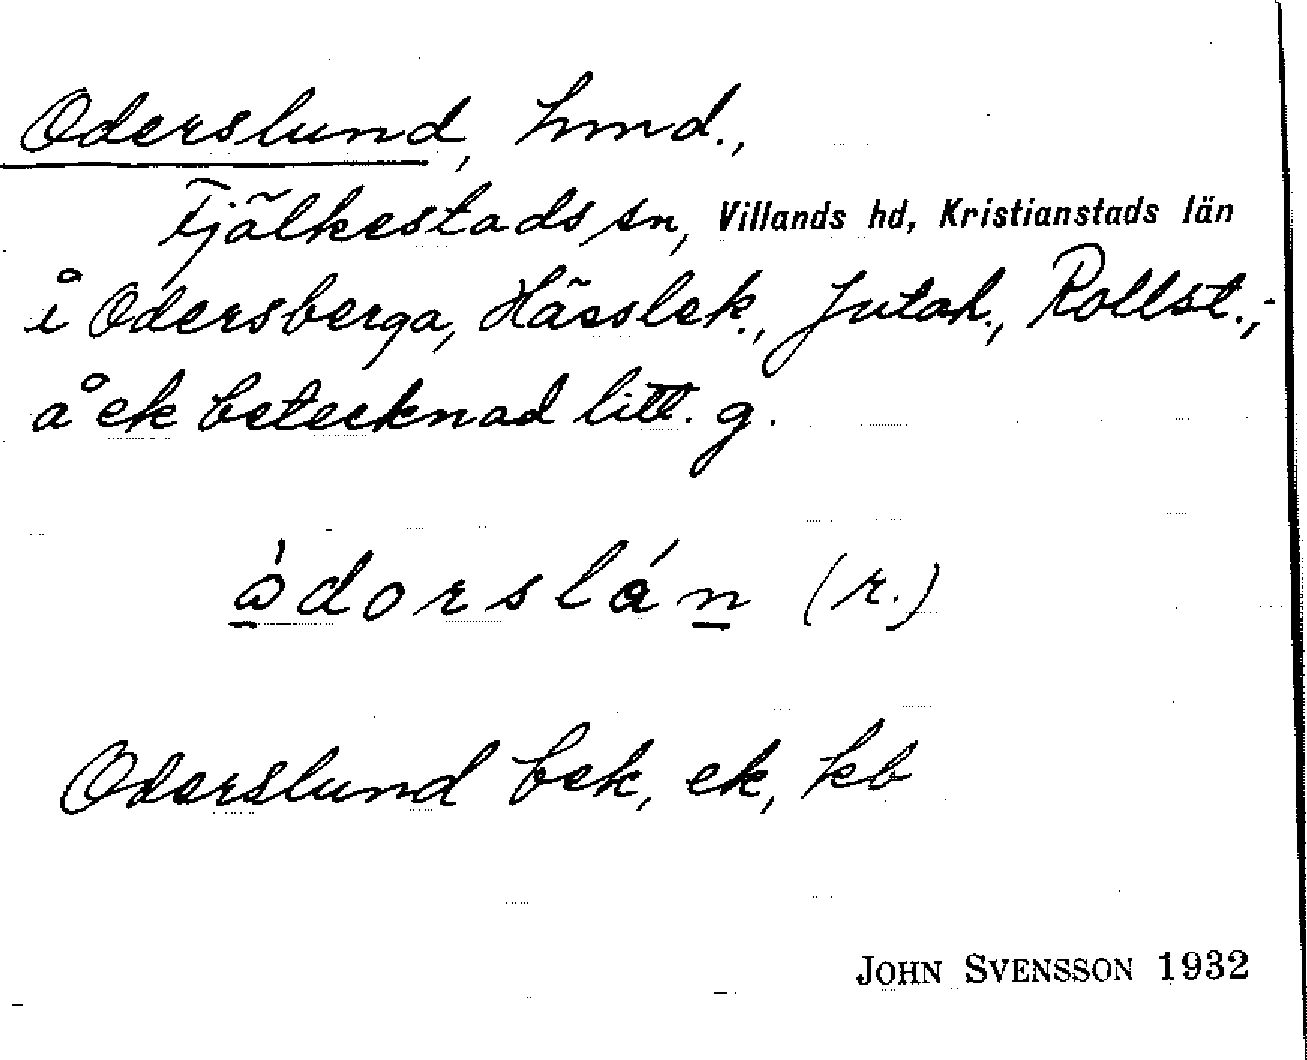 Oderslund, hmd.,
Fjälkestads sn, Villands hd, Kristianstads län
å Odersberga, Hässlek., Jutah., Rollst.;
å ek betecknad litt. g.
òdorslán (r.)
Oderslund bek, ek, kb
JOHN SVENSSON 1932